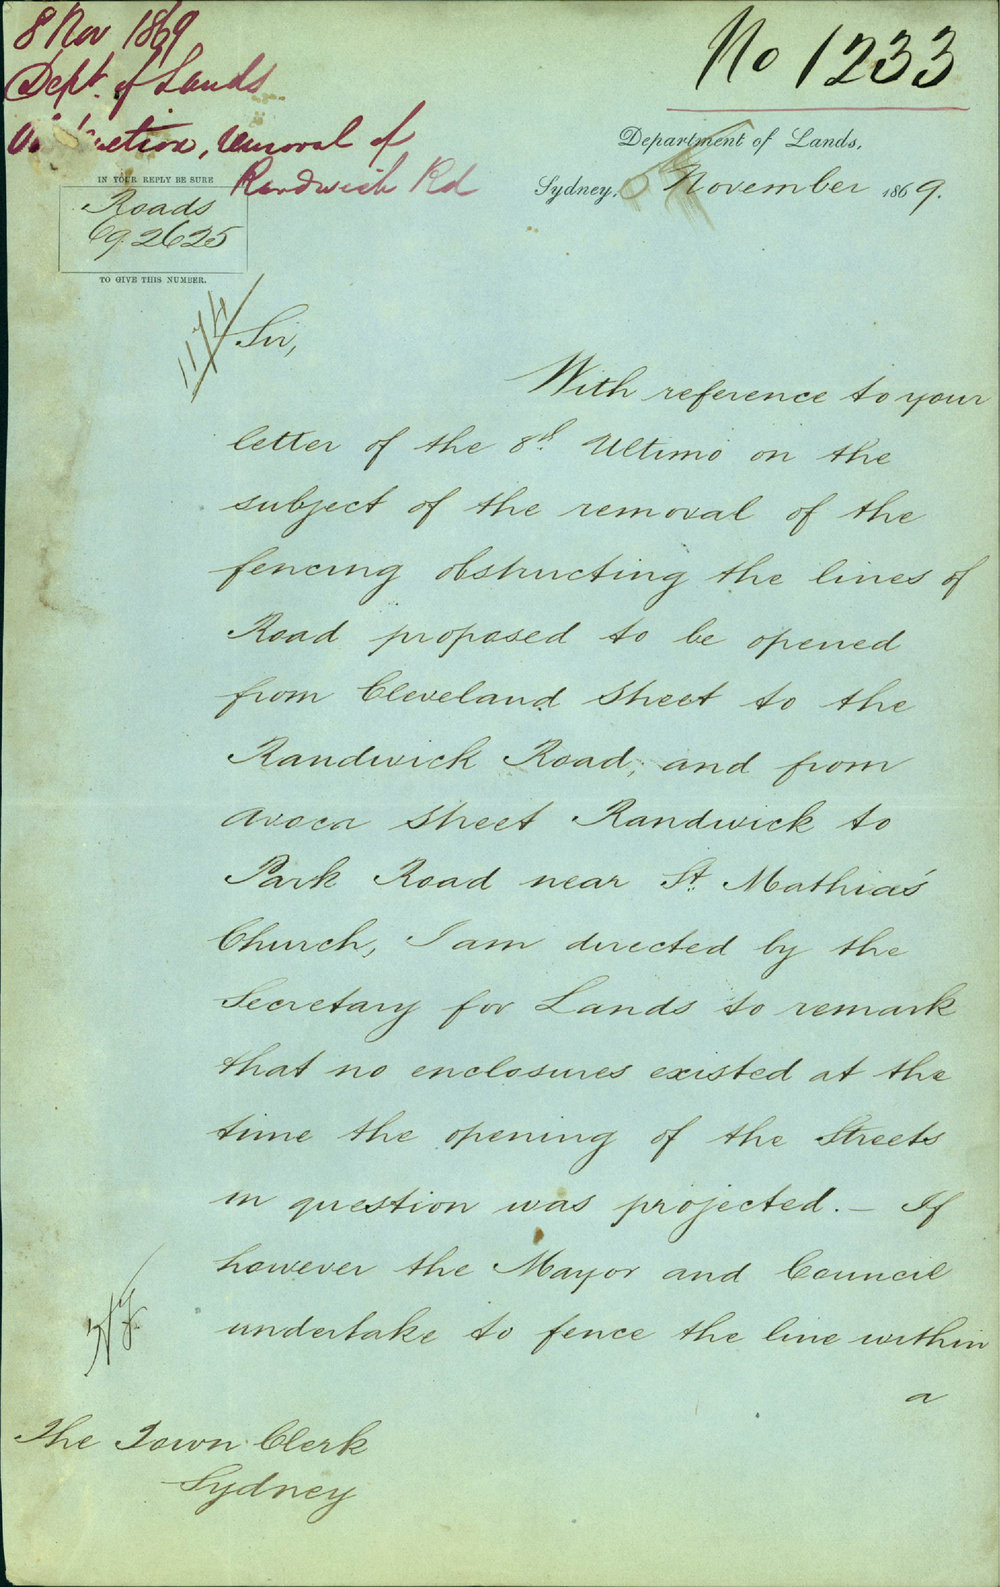 8 Nov 1869
Dept. of Lands
removal of
Randwick Rd
No 1233
Department of Lands,
Sydney, November 1869.
IN YOUR REPLY BE SURE
Roads
69.2625
TO GIVE THIS NUMBER.
Sir,
With reference to your
letter of the 8th. Ultimo on the
subject of the removal of the
fencing obstructing the lines of
Road proposed to be opened
from Cleveland Street to the
Randwick Road, and from
Avoca Street Randwick to
Park Road near St. Mathia's
Church, I am directed by the
Secretary for Lands to remark
that no enclosures existed at the
time the opening of the Streets
in question was projected. — If
however the Mayor and Council
undertake to fence the line within
a
The Town Clerk
Sydney